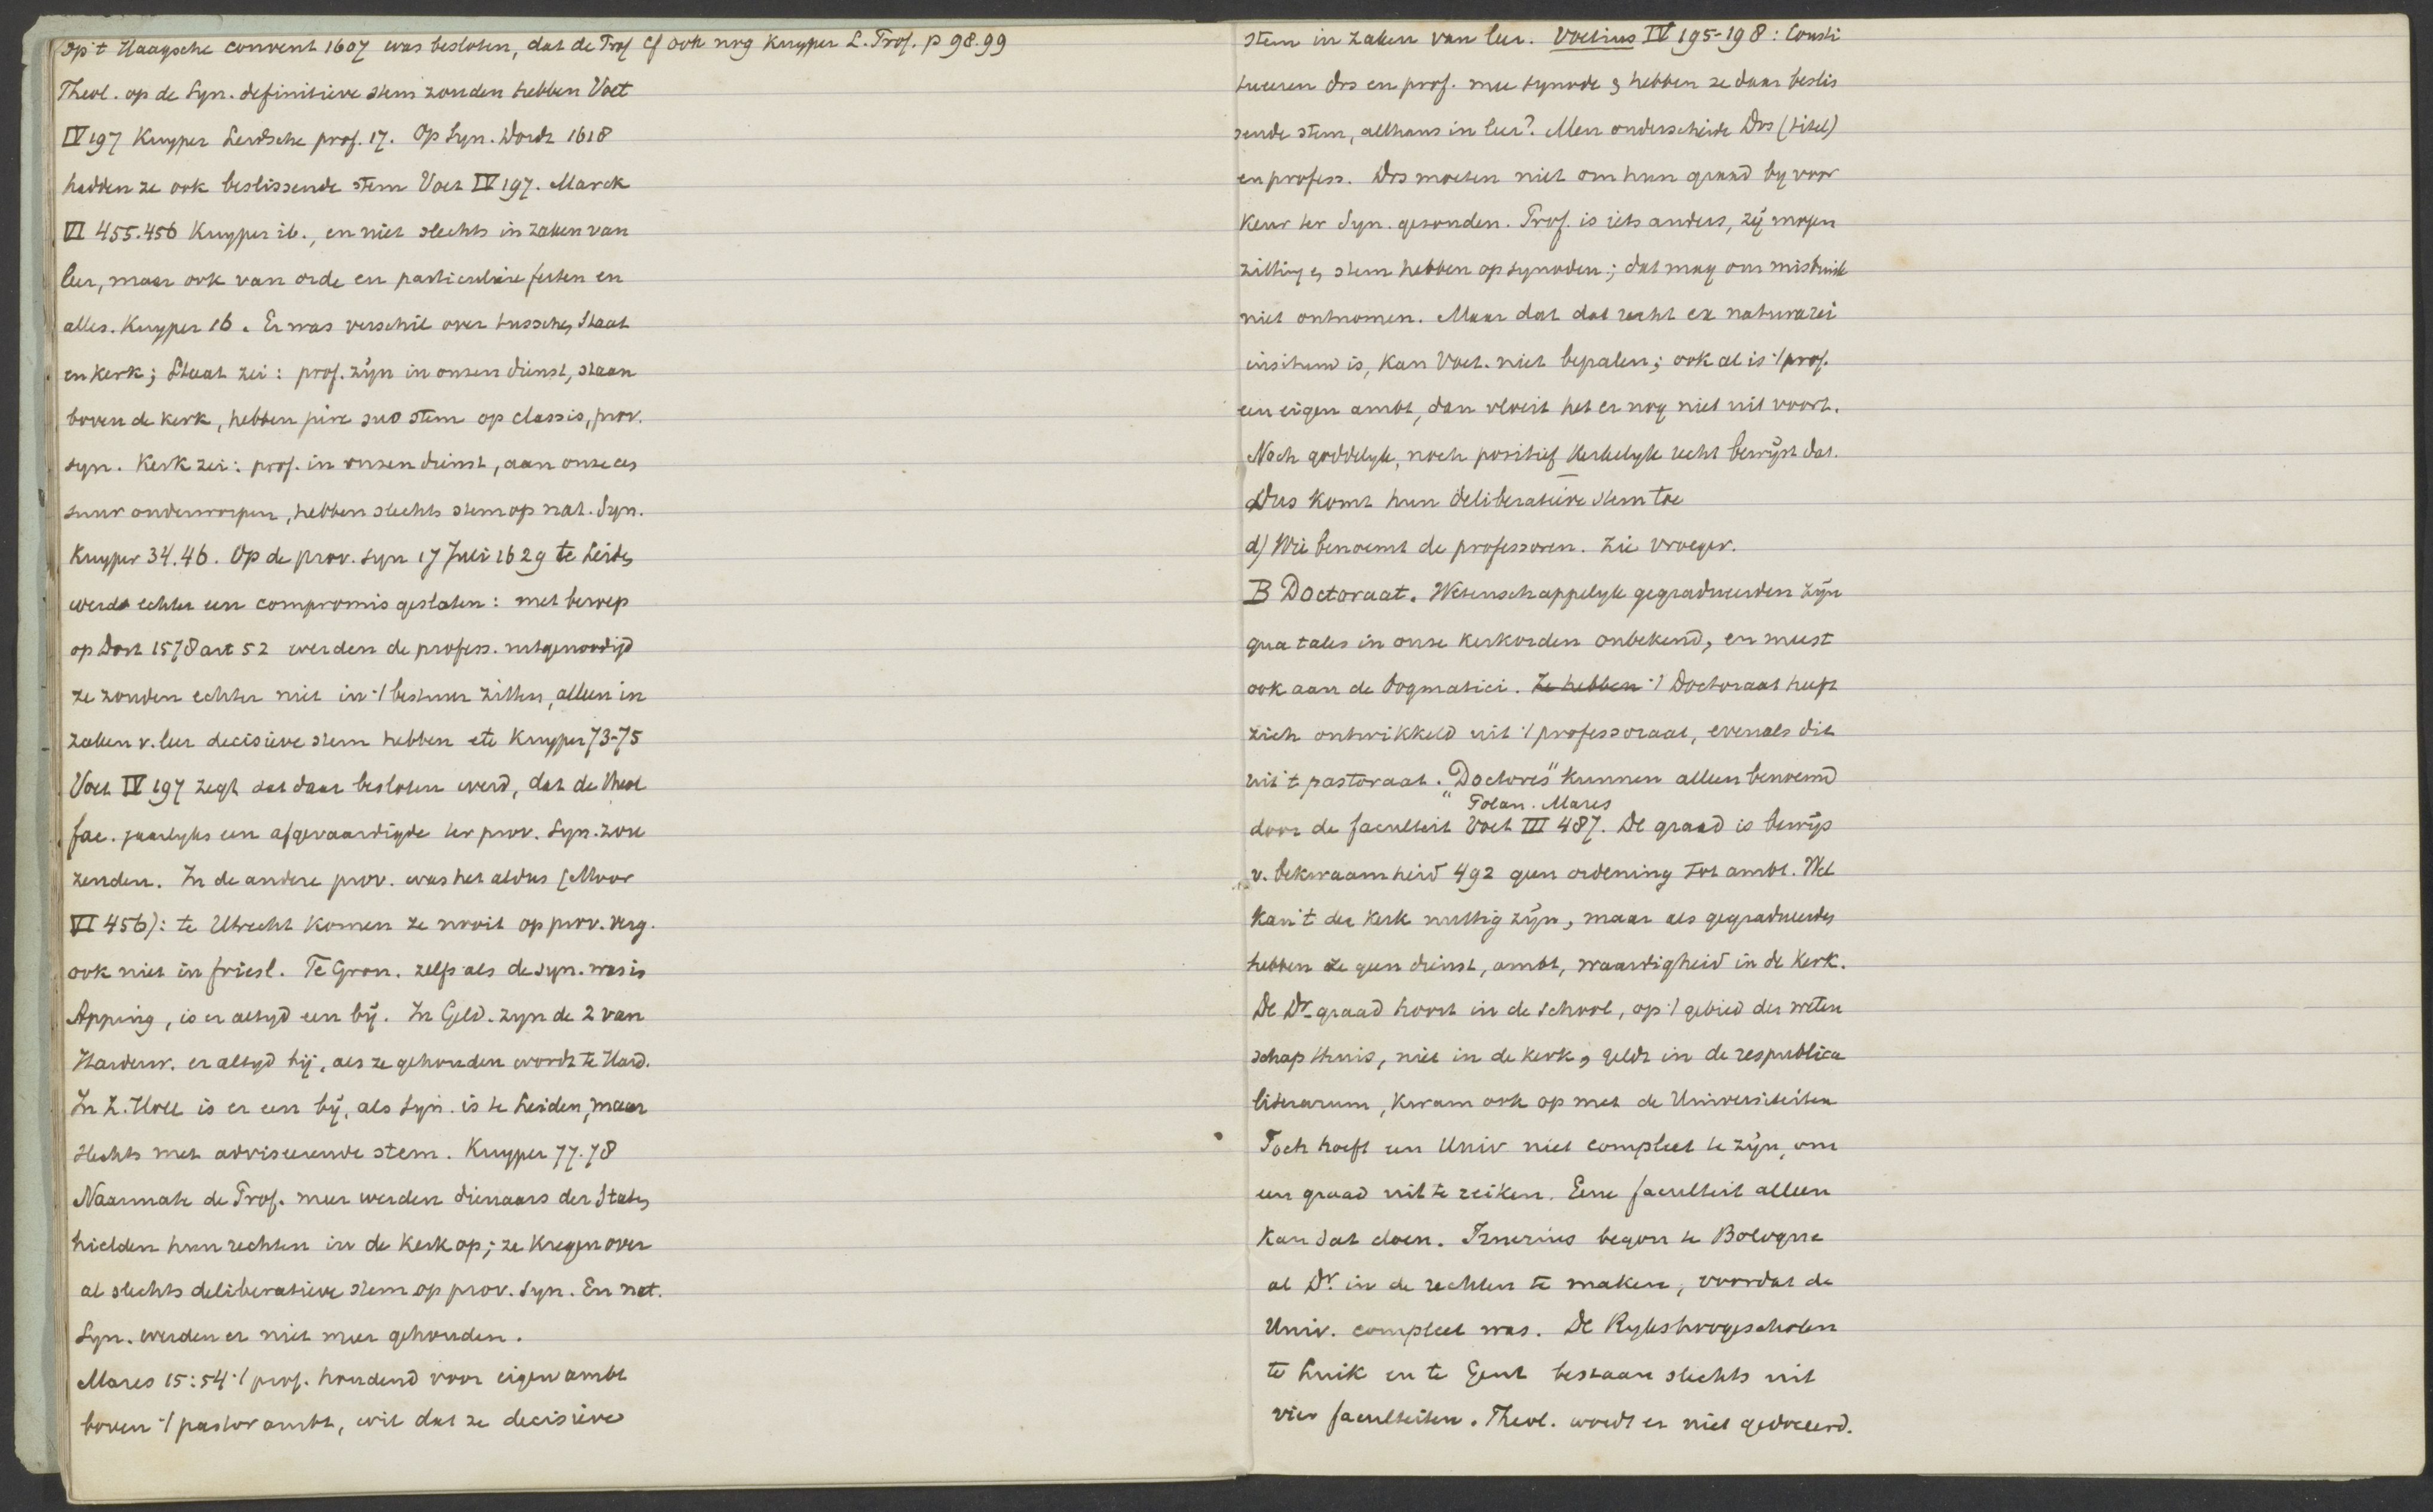 op 't Haagsche convent 1607 was besloten, dat de Prof cf ook nog Kuyper L. Prof. p 98.99
Theol. op de Syn. definitieve stem zouden hebben Voet
IV 197 Kuyper Leidsche prof. 17. Op Syn. Dordr 1618
hadden ze ook beslissende stem Voet IV 197. Marck
VI 455.456 Kuyper ib., en niet slechts in zaken van
leer, maar ook van orde en particuliere feiten en
alles. Kuyper 16. Er was verschil over tusschen Staat
en kerk; Staat zei: prof. zijn in onzen dienst, staan
boven de kerk, hebben jure suo stem op classis, prov.
syn. Kerk zei: prof. in onzen dienst, aan onze cen
suur onderworpen, hebben slechts stem op nat. Syn.
Kuyper 34.46. Op de prov. syn 17 Juli 1629 te Leiden
werd echter een compromis gesloten: met beroep
op Dort 1578 art 52 werden de profess. uitgenoodigd
ze zouden echter niet in 't bestuur zitten, alleen in
zaken v. leer decisieve stem hebben etc Kuyper 73-75
Voet IV 197 zegt dat daar besloten werd, dat de theol
fac. jaarlyks een afgevaardigde ter prov. Syn. zou
zenden. In de andere prov. was het aldus (Moor
VI 456): te Utrecht komen ze nooit op prov. verg.
ook niet in friesl. Te Gron. zelfs als de syn. was in
Apping, is er altyd een bij. In Geld. zyn de 2 van
Harderw. er altyd bij, als ze gehouden wordt te Hard.
In Z. Holl is er een bij, als Syn. is te Leiden, maar
slechts met adviseerende stem. Kuyper 77.78
Naarmate de Prof. meer werden dienaars der Staten
hielden hun rechten in de Kerk op; ze kregen over
al slechts deliberatieve stem op prov. Syn. En nat.
Syn. werden er niet meer gehouden.
Mares 15:54 't prof. houdend voor eigen ambt
boven 't pastor ambt, wil dat ze decisieve
stem in zaken van leer. Voetius IV 195-198: Consti
tueeren drs en prof. mee synode & hebben ze daar beslis
sende stem, althans in leer? Men onderscheide Drs (titel)
en profess. Drs moeten niet om hun graad by voor
keur ter Syn. gezonden. Prof. is iets anders, zij mogen
zitting en stem hebben op synoden; dat mag om misbruik
niet ontnomen. Maar dat dat recht ex natura rei
insitum is, kan Voet. niet bepalen; ook al is 't prof.
een eigen ambt, dan vloeit het er nog niet uit voort.
Noch goddelyk, noch positief kerkelyk recht bewijst dat.
Dus komt hun deliberatieve stem toe
d) Wie benoemt de professoren. Zie vroeger.
B Doctoraat. Wetenschappelyk gegradueerden zijn
qua tales in onze kerkorden onbekend, en meest
ook aan de dogmatici. Ze hebben 't Doctoraat heeft
zich ontwikkeld uit 't professoraat, evenals dit
uit 't pastoraat. "Doctores" kunnen alleen benoemd
Polan. Mares
door de faculteit Voet III 487. De graad is bewijs
v. bekwaamheid 492 geen ordening tot ambt. Wel
kan 't der kerk nuttig zijn, maar als gegradueerden
hebben ze geen dienst, ambt, waardigheid in de Kerk.
De Dr. graad hoort in de School, op 't gebied der weten
schap thuis, niet in de kerk, geldt in de respublica
literarum, kwam ook op met de Universiteiten
Toch hoeft een Univ niet compleet te zijn, om
een graad uit te reiken. Eene faculteit alleen
kan dat doen. Irnerius begon te Bologna
al Dr. in de rechten te maken, voordat de
Univ. compleet was. De Rykshoogescholen
te Luik en te Gent bestaan slechts uit
vier faculteiten. Theol. wordt er niet gedoceerd.